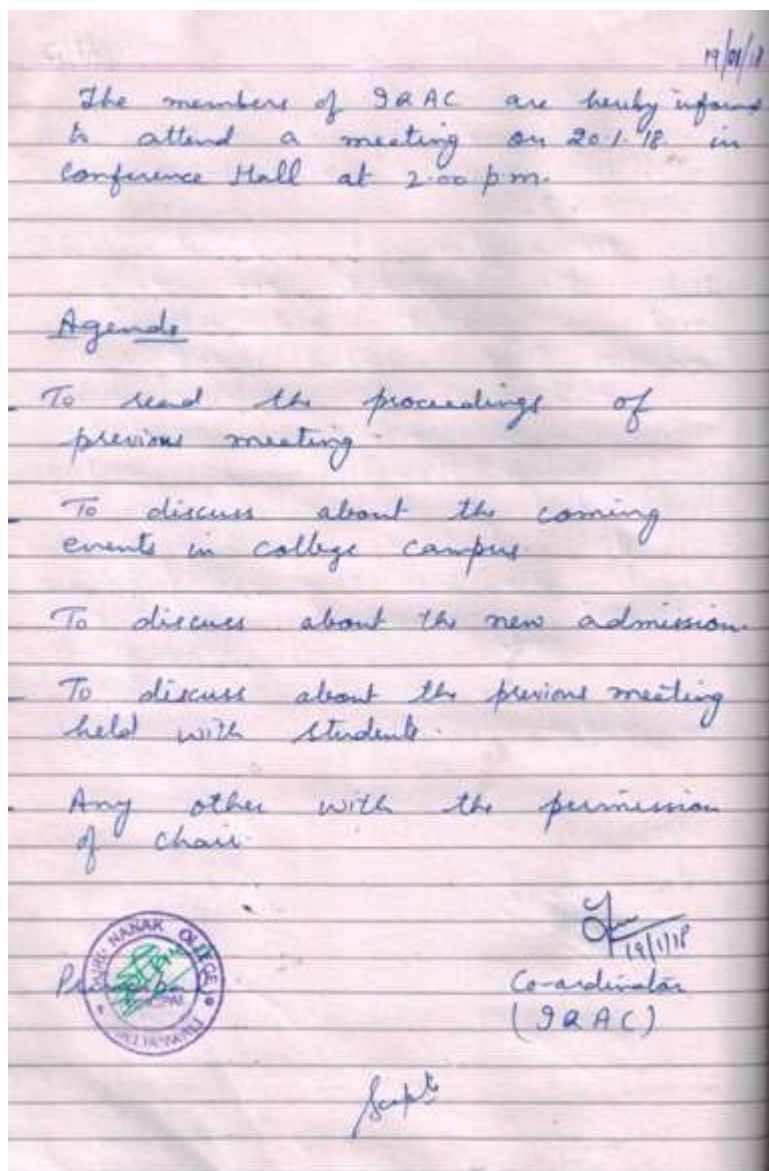 19/01/18
The members of IQAC are hereby informed
to attend a meeting on 20.1.18. in
Conference Hall at 2.00 p.m.
Agenda
- To read the proceedings of
previous meeting.
- To discuss about the coming
events in college campus
To discuss about the new admission.
- To discuss about the previous meeting
held with students.
- Any other with the permission
of chair.
GURU NANAK COLLEGE
19/1/18
Principal
Co-ordinator
(IQAC)